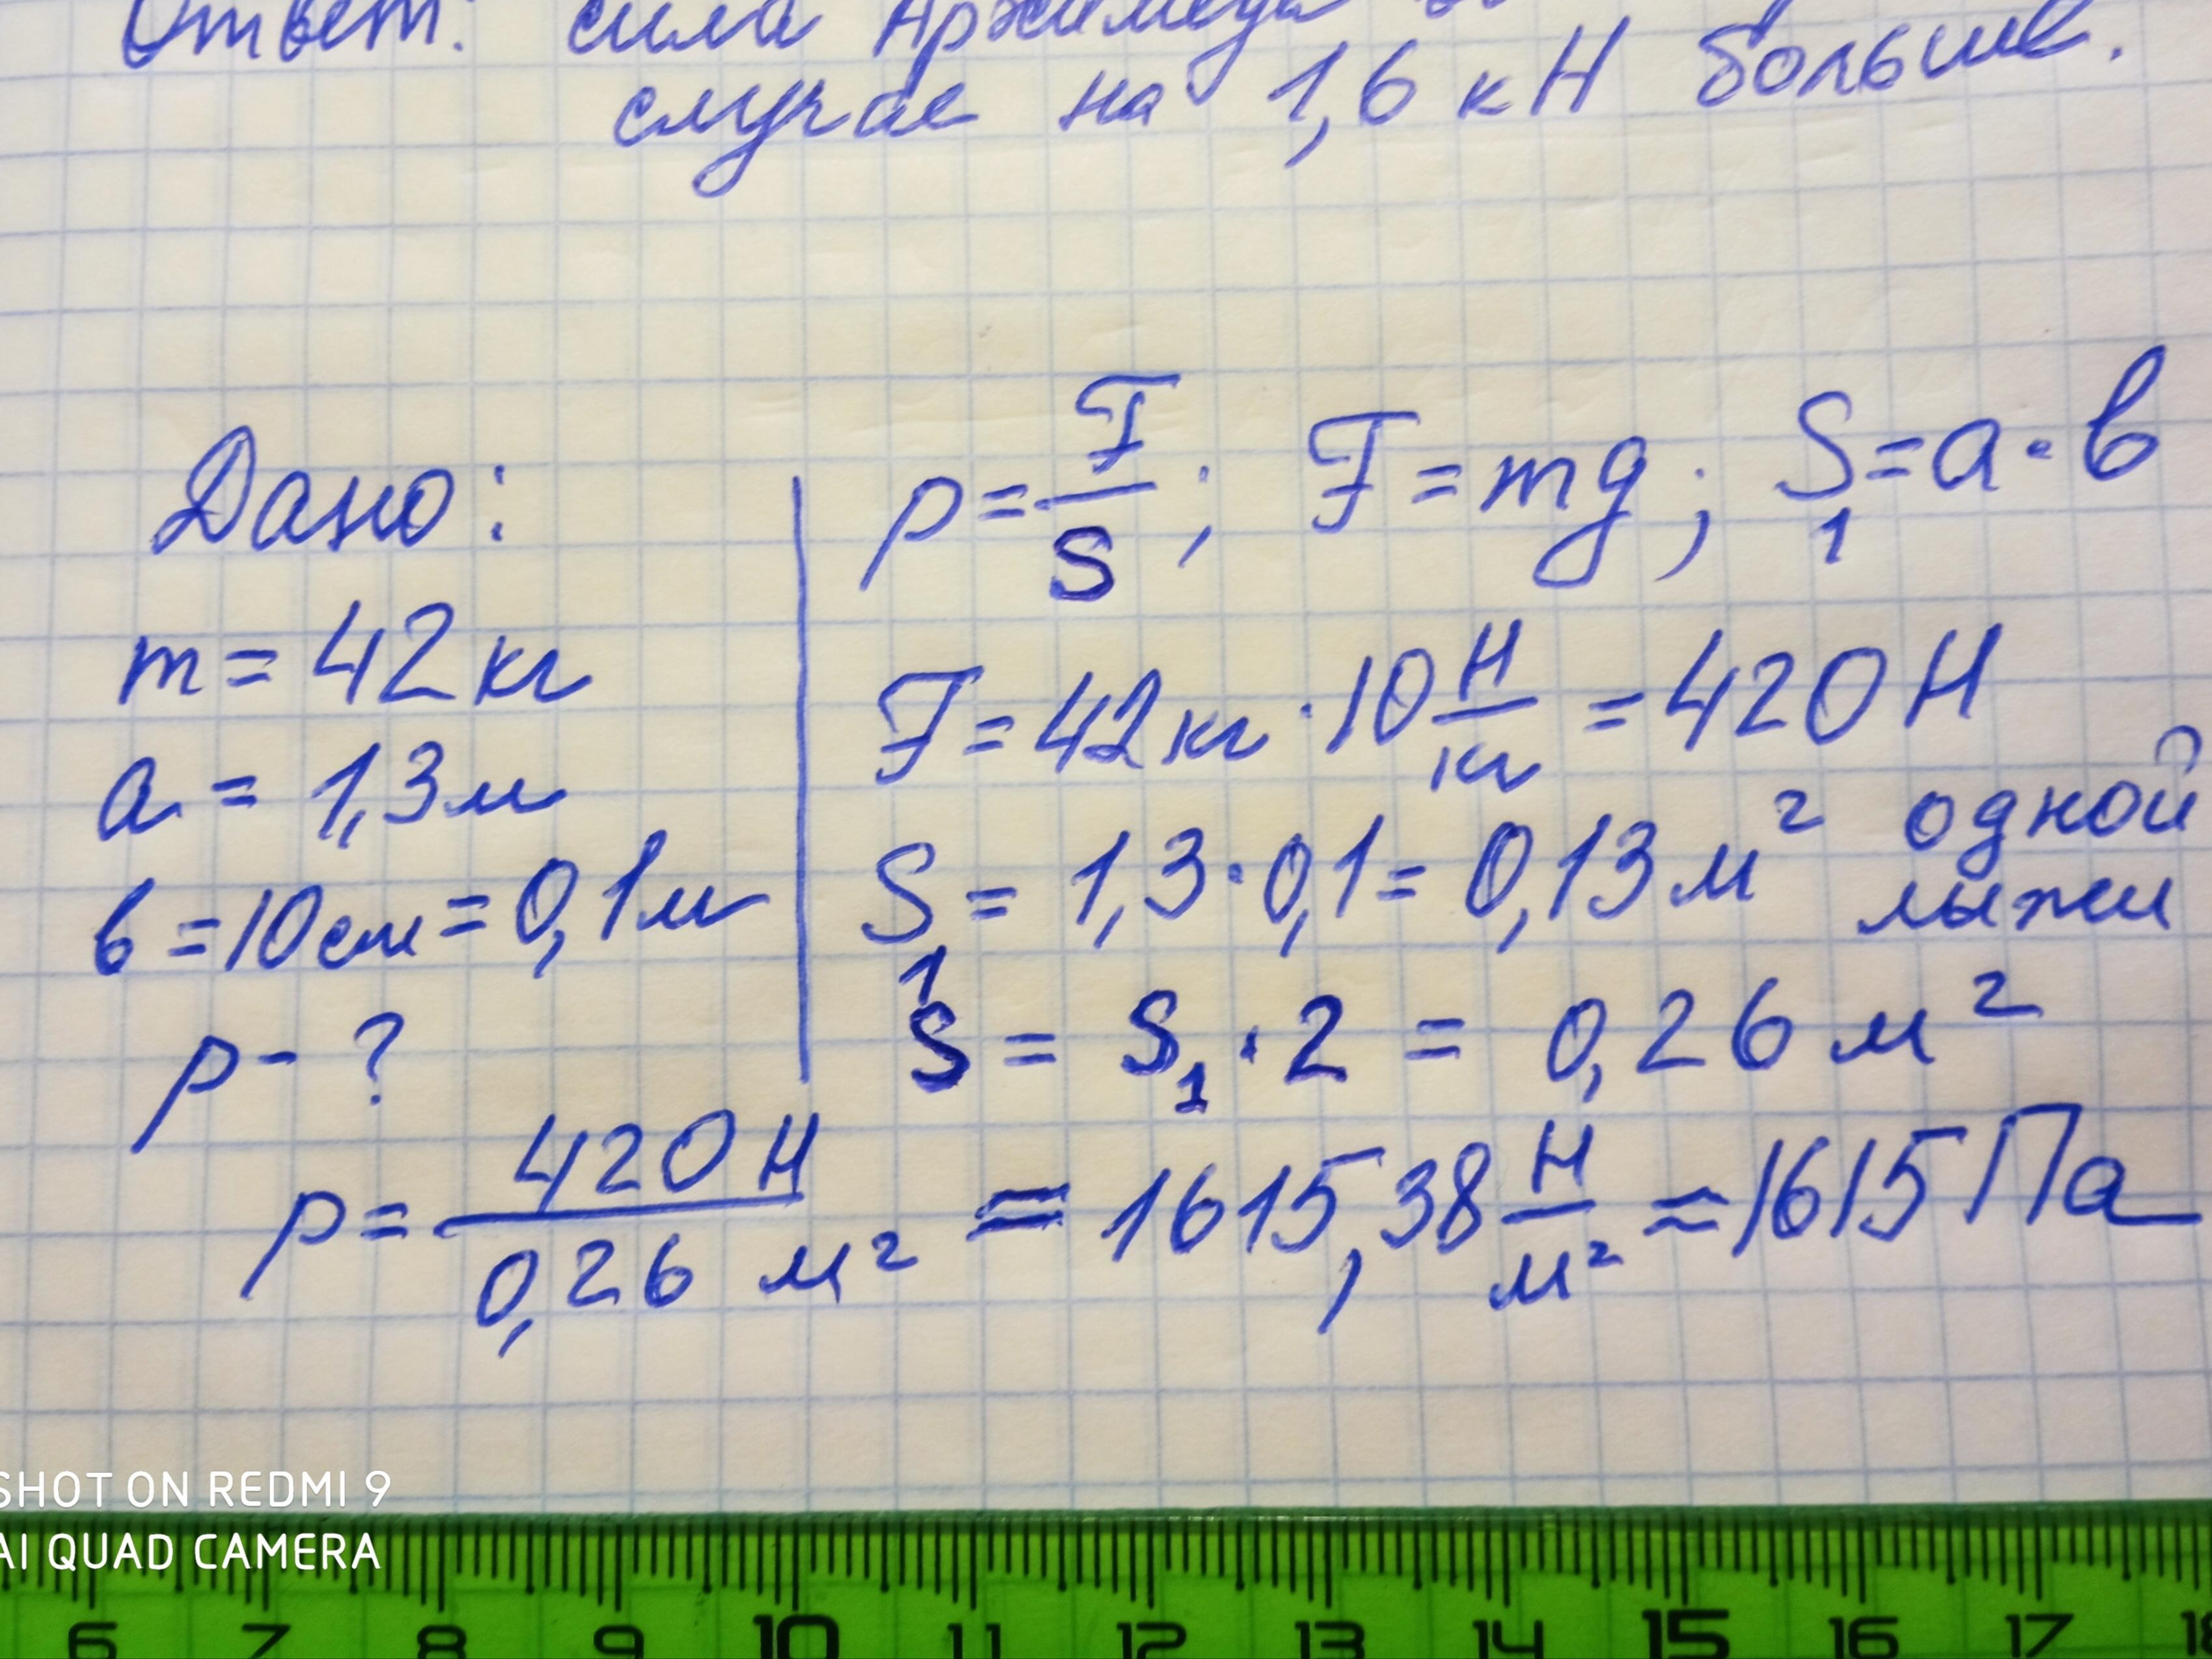 Ответ: сила Архимеда
случае на 1,6 кН больше.
Дано:
m = 42 кг
a = 1,3 м
b = 10 см = 0,1 м
p - ?
p = F/S; F = mg; S₁ = a · b
F = 42 кг · 10 Н/кг = 420 Н
S₁ = 1,3 · 0,1 = 0,13 м² одной
лыжи
S = S₁ · 2 = 0,26 м²
p = 420 Н / 0,26 м² = 1615,38 Н/м² ≈ 1615 Па
SHOT ON REDMI 9
AI QUAD CAMERA
6 7 8 9 10 11 12 13 14 15 16 17 18